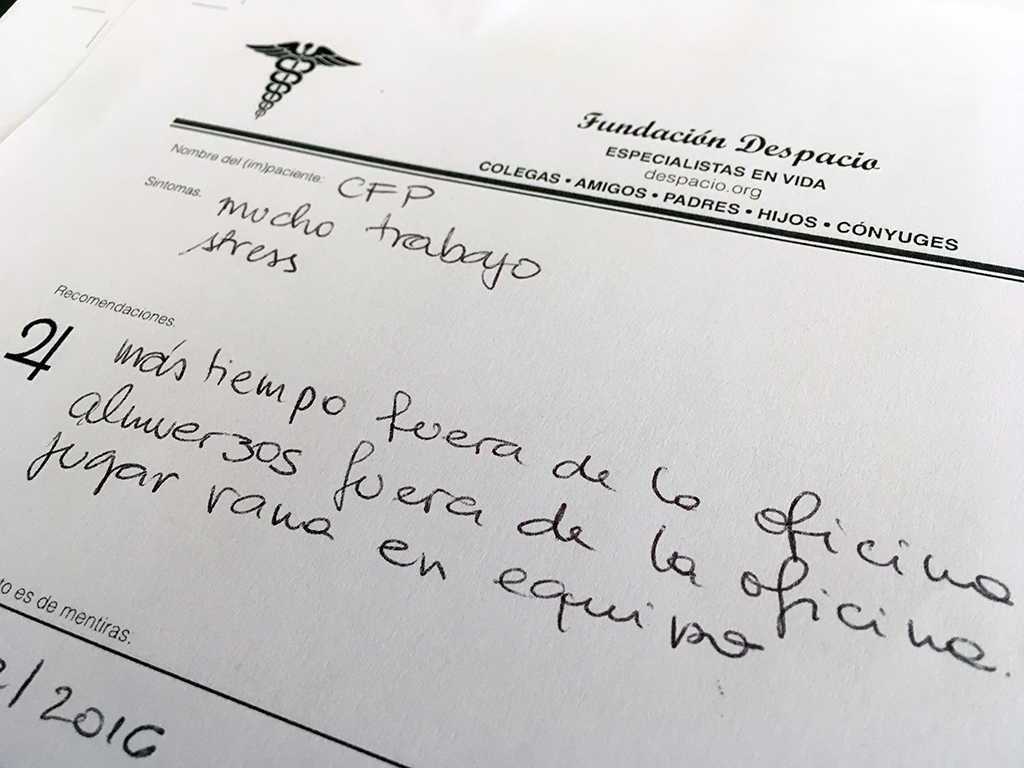 Fundación Despacio
ESPECIALISTAS EN VIDA
despacio.org
COLEGAS • AMIGOS • PADRES • HIJOS • CÓNYUGES
Nombre del (im)paciente: CFP
Síntomas. mucho trabajo
stress
Recomendaciones.
más tiempo fuera de la oficina
almuerzos fuera de la oficina.
jugar rana en equipo
es de mentiras.
/2016